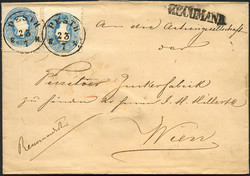 PESTH
23
7
PESTH
23
7
RECOMAND.
An die Actiengesellschaft
der
Zuckerfabrik
zu Händen des Herrn J. H.
Wien